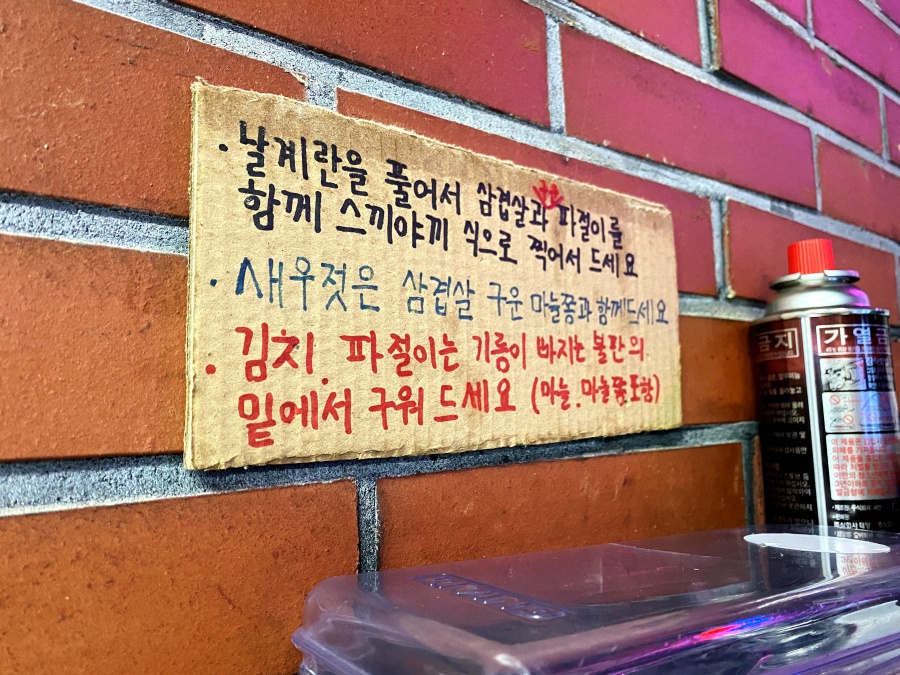 · 날계란을 풀어서 삼겹살과 파절이를
함께 스끼야끼 식으로 찍어서 드세요
· 새우젓은 삼겹살 구운 마늘쫑과 함께드세요
· 김치. 파절이는 기름이 빠지는 불판의
밑에서 구워 드세요 (마늘.마늘쫑포함)
금지
가열금